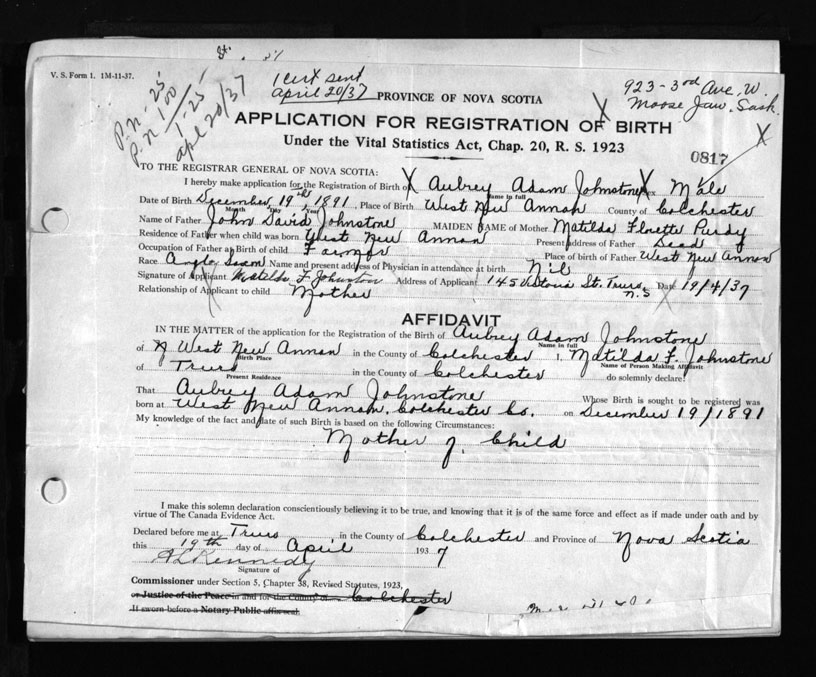 V. S. Form 1. 1M-11-37.
1 cert sent
April 20/37
PROVINCE OF NOVA SCOTIA
923-3rd Ave. W.
Moose Jaw, Sask.
P.N - 25
P.N 100
1-25
apl 20/37
X
APPLICATION FOR REGISTRATION OF BIRTH
X
Under the Vital Statistics Act, Chap. 20, R. S. 1923
0817
TO THE REGISTRAR GENERAL OF NOVA SCOTIA:
I hereby make application for the Registration of Birth of X Aubrey Adam Johnstone X Male
Name in full
Date of Birth December 19th 1891, Place of Birth West New Annan County of Colchester
Month Day Year
Name of Father John David Johnstone MAIDEN NAME of Mother Matilda Florette Purdy
Residence of Father when child was born West New Annan Present address of Father Dead
Occupation of Father at Birth of child Farmer Place of birth of Father West New Annan
Race Anglo Saxon Name and present address of Physician in attendance at birth Nil
Signature of Applicant Matilda F. Johnston Address of Applicant 145 Victoria St. Truro, N.S Date 19/4/37
Relationship of Applicant to child Mother
AFFIDAVIT
IN THE MATTER of the application for the Registration of the Birth of Aubrey Adam Johnstone
Name in full
of West New Annan in the County of Colchester I, Matilda F. Johnstone
Birth Place Name of Person Making Affidavit
of Truro in the County of Colchester do solemnly declare:
Present Residence
That Aubrey Adam Johnstone Whose Birth is sought to be registered was
born at West New Annan, Colchester Co. on December 19/1891
My knowledge of the fact and date of such Birth is based on the following Circumstances:
Mother of Child
I make this solemn declaration conscientiously believing it to be true, and knowing that it is of the same force and effect as if made under oath and by
virtue of The Canada Evidence Act.
Declared before me at Truro in the County of Colchester and Province of Nova Scotia
this 19th day of April 1937
Kennedy
Signature of
Commissioner under Section 5, Chapter 38, Revised Statutes, 1923,
or Justice of the Peace in and for the County of Colchester
If sworn before a Notary Public affix seal.